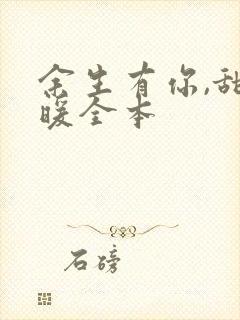 余生有你,甜
暖全本
石磅